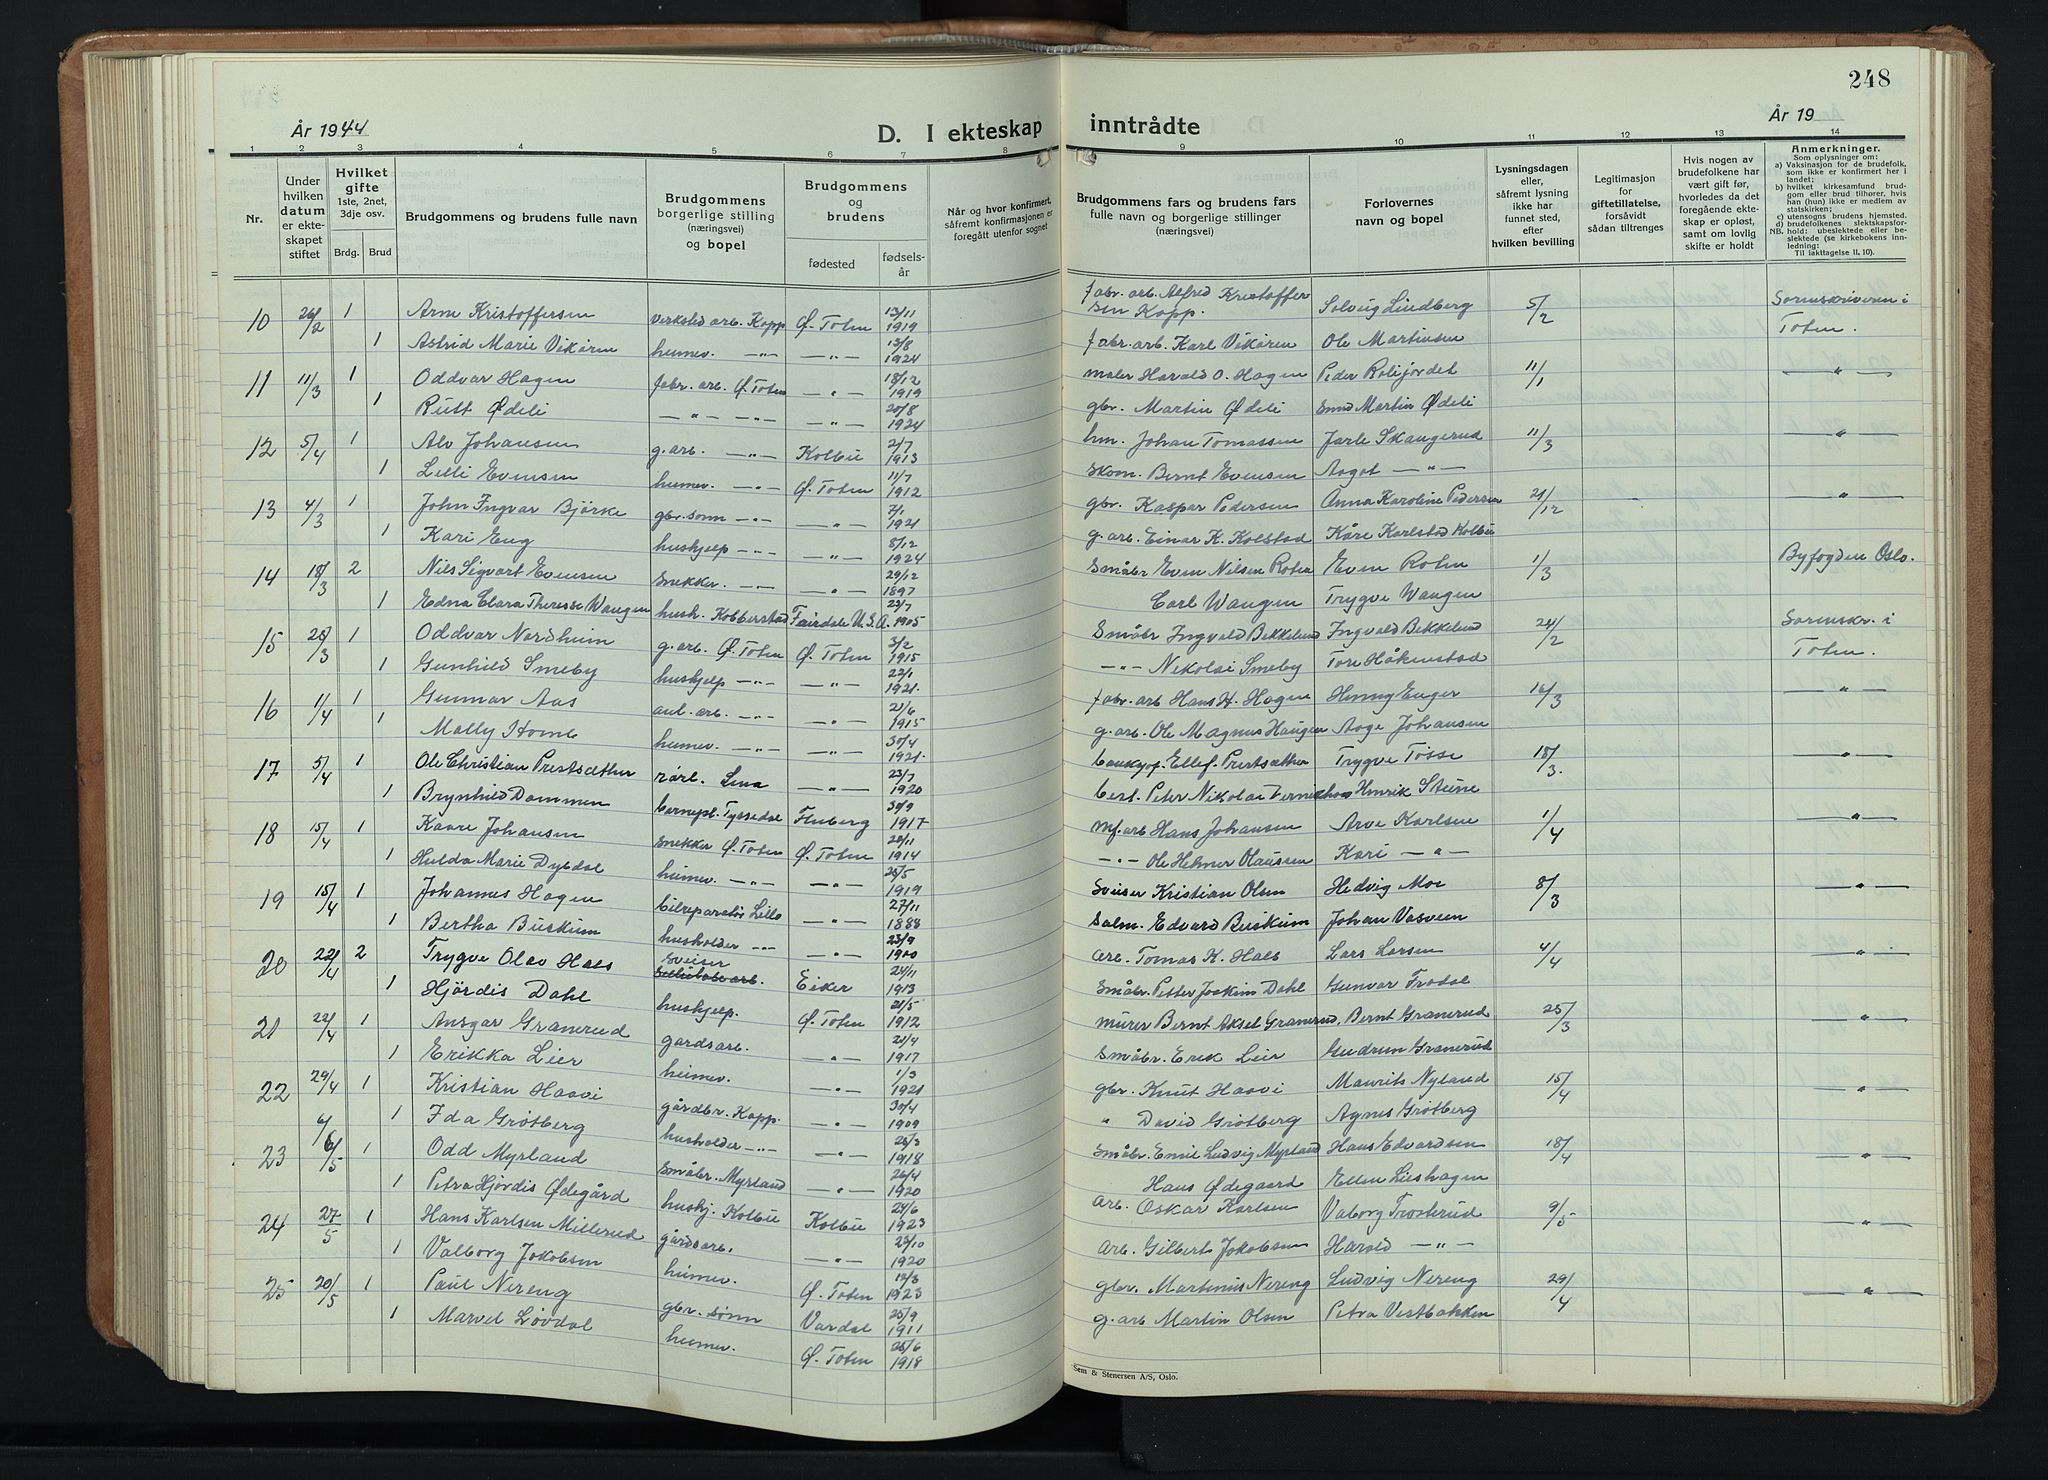 248
År 1944
D. I ekteskap inntrådte
År 19
1 2 3 4 5 6 7 8 9 10 11 12 13 14
Nr.
Under hvilken datum er ekteskapet stiftet
Hvilket gifte 1ste, 2net, 3dje osv.
Brdg. Brud
Brudgommens og brudens fulle navn
Brudgommens borgerlige stilling (næringsvei) og bopel
Brudgommens og brudens
fødested
fødselsår
Når og hvor konfirmert, såfremt konfirmasjonen er foregått utenfor sognet
Brudgommens fars og brudens fars fulle navn og borgerlige stillinger (næringsvei)
Forlovernes navn og bopel
Lysningsdagen eller, såfremt lysning ikke har funnet sted, efter hvilken bevilling
Legitimasjon for giftetillatelse, forsåvidt sådan tiltrenges
Hvis nogen av brudefolkene har vært gift før, hvorledes da det foregående ekteskap er opløst, samt om lovlig skifte er holdt
Anmerkninger.
Som oplysninger om:
a) Vaksinasjon for de brudefolk, som ikke er konfirmert her i landet;
b) hvilket kirkesamfund brudgom eller brud tilhører, hvis han (hun) ikke er medlem av statskirken;
c) utensogns brudens hjemsted.
d) brudefolkenes slektskapsforhold: ubeslektede eller beslektede (se kirkebokens innledning:
NB. Til iakttagelse II. 10).
10 26/2 1 Arne Kristoffersen verksted arb. Kapp Ø. Toten 13/11 1919 fabr. arb. Alfred Kristoffersen Kapp. Solveig Lindberg 5/2 Sorenskriveren i Toten.
1 Astrid Marie Vikøren heimev. —"— —"— 13/8 1924 fabr. arb. Karl Vikøren Ole Martinsen
11 11/3 1 Oddvar Hagen fabr. arb. Ø. Toten —"— 18/12 1919 maler Harald O. Hagen Peder Rolijordet 11/1 —"—
1 Rutt Ødeli —"— —"— —"— 20/8 1924 gbr. Martin Ødeli Martin Ødeli
12 5/4 1 Alv Johansen g. arb. —"— Kolbu 2/7 1913 hm. Johan Tomassen Jarle Skaugerud 11/3 —"—
1 Lilli Evensen heimev. —"— Ø. Toten 11/7 1912 skom. Bernt Evensen Aagot —"—
13 4/3 1 John Ingvar Bjørke gbr. sønn —"— —"— 7/1 1921 gbr. Kaspar Pedersen Anna Karoline Pedersen 21/12 —"—
1 Kari Eng hushjelp —"— —"— 8/12 1924 g. arb. Einar K. Kolstad Kåre Karlstad Kolbu
14 18/3 2 Nils Sigvart Evensen Snekker —"— —"— 29/12 1897 Småbr Even Nilsen Roten Even Roten 1/3 Byfogden Oslo.
1 Edna Clara Therese Waugen hush. Kolberstad Fairdale U.S.A. 23/7 1905 Carl Waugen Trygve Waugen
15 25/3 1 Oddvar Nordheim g. arb. Ø. Toten Ø. Toten 3/2 1915 Småbr Ingvald Bekkelund Ingvald Bekkelund 24/2 Sorenskr. i Toten.
1 Gunhild Smeby hushjelp —"— —"— 22/1 1921. —"— Nikolai Smeby Tore Håkenstad
16 1/4 1 Gunnar Aas anl. arb. —"— —"— 21/6 1915 fabr. arb Hans H. Hagen Henny Enger 16/3 —"—
1 Molly Homb heimev. —"— —"— 30/4 1921. g. arb. Ole Magnus Haugen Aage Johansen
17 5/4 1 Ole Christian Prestsæther rørl. Lena —"— 23/7 1920 Ellef Prestsæther Trygve Tosse 18/3. —"—
1 Brynhild Dammen barnepl. Tyssedal Fluberg 30/9 1917 Peter Nikolai Henrik Steine
18 15/4 1 Kaare Johansen Snekker Ø. Toten Ø. Toten 20/11 1914 Mf. arb Hans Johansen Arve Karlsen 1/4 —"—
1 Hulda Marie Dybdal heimev. —"— —"— 25/5 1919 —"— Ole Helmer Olaussen Kari —"—
19 15/4 1 Johannes Hagen bilreparatør Lillo —"— 27/11 1888 Sveiser Kristian Olsen Hedvig Moe 8/3 —"—
1 Bertha Buskum husholder —"— —"— 23/9 1900 Salm. Edvard Buskum Johan Vasveen
20 22/4 2 Trygve Olav Haes sveiser Eiker 24/11 1913 arb. Tomas K. Haes Lars Larsen 4/4 —"—
1 Hjördis Dahl hushjelp. Ø. Toten 21/5 1912 Småbr. Petter Joakim Dahl Gunvor Frodal
21 22/4 1 Ansgar Granerud gardsarb. —"— 21/4 1917 murer Bernt Aksel Granerud. Bernt Granerud 25/3 —"—
1 Erikka Lier heimev. —"— 1/3 1921 Småbr. Erik Lier Gudrun Granerud
22 29/4 1 Kristian Haavi gårdbr. Kapp. —"— 30/4 1909 gbr. Knut Haavi Maurits Nyland 15/4 —"—
1 Ida Grötberg husholder —"— —"— 25/3 1918 " David Grötberg Agnes Grötberg
23 6/5 1 Odd Myrland Småbr. Myrland —"— 26/4 1920 Småbr. Emil Ludvig Myrland Hans Edvardsen 18/4 —"—
1 Petra Hjördis Ødegård hushj. Kolbu Kolbu 24/6 1923 Hans Ødegaard Ellen Lieshagen
24 27/5 1 Hans Karlsen Millerud gårdsarb. —"— 23/10 1920 Arb. Oskar Karlsen Valborg Trosterud 9/5 —"—
1 Valborg Jokobsen heimev. Ø. Toten 12/3 1923 Arb. Gilbert Jokobsen Harald —"—
25 20/5 1 Paul Nereng gbr. sønn Vardal 25/9 1911 gbr. Martinus Nereng Ludvig Nereng 29/4 —"—
1 Marvel Løvdal heimev. Ø. Toten 26/6 1918 g. arb Martin Olsen Petra Vestbakken
Sem & Stenersen A/S, Oslo.